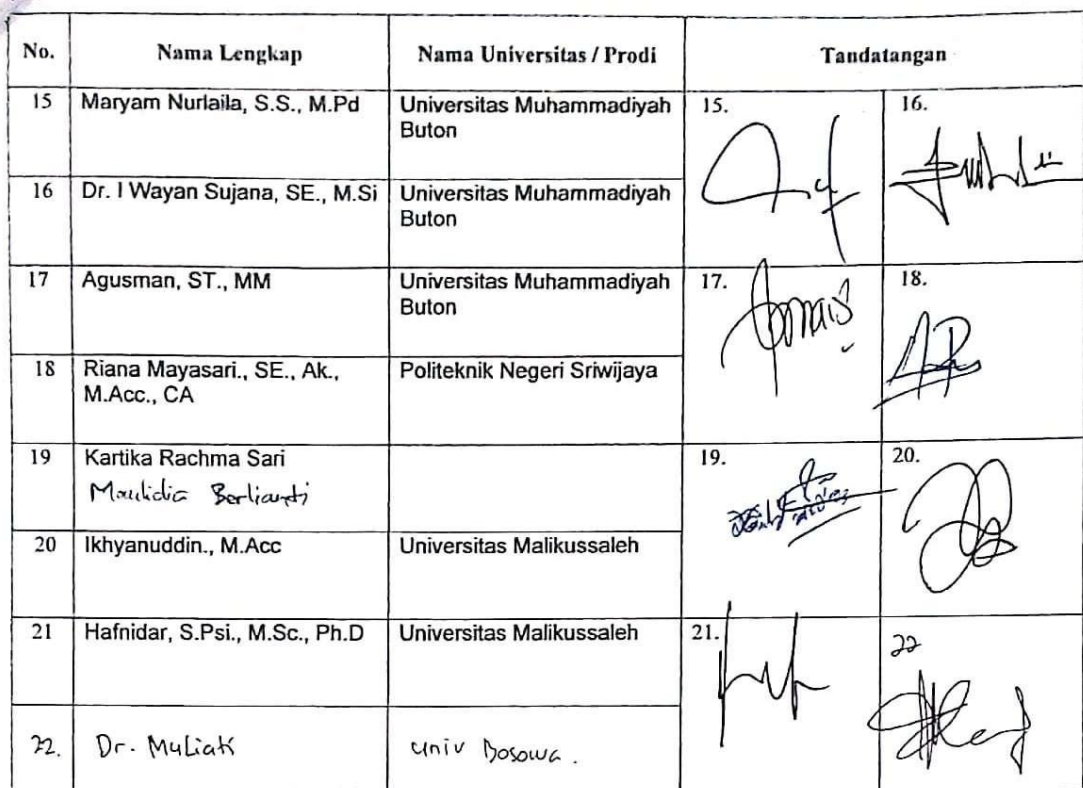 No. Nama Lengkap Nama Universitas / Prodi Tandatangan
15 Maryam Nurlaila, S.S., M.Pd Universitas Muhammadiyah 15. 16.
Buton
16 Dr. I Wayan Sujana, SE., M.Si Universitas Muhammadiyah
Buton
17 Agusman, ST., MM Universitas Muhammadiyah 17. 18.
Buton
18 Riana Mayasari., SE., Ak., Politeknik Negeri Sriwijaya
M.Acc., CA
19 Kartika Rachma Sari 19. 20.
Maulidia Berlianti
20 Ikhyanuddin., M.Acc Universitas Malikussaleh
21 Hafnidar, S.Psi., M.Sc., Ph.D Universitas Malikussaleh 21. 22
22. Dr. Muliati univ Bosowa.